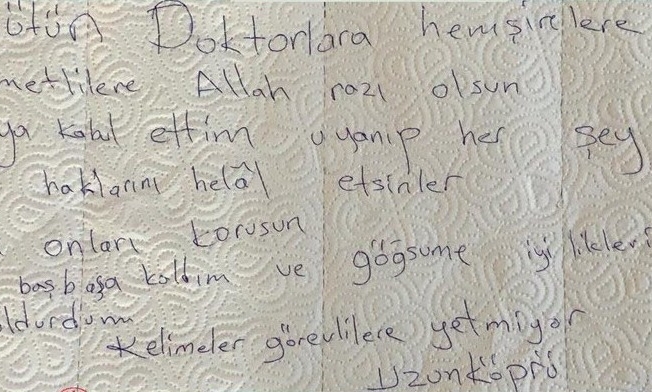 ütün Doktorlara hemşirelere
metlilere Allah razı olsun
ya kabul ettim uyanıp her şey
haklarını helâl etsinler
onları korusun
başbaşa kaldım ve göğsume iyilikleri
oldurdum
Kelimeler görevlilere yetmiyor
Uzunköprü